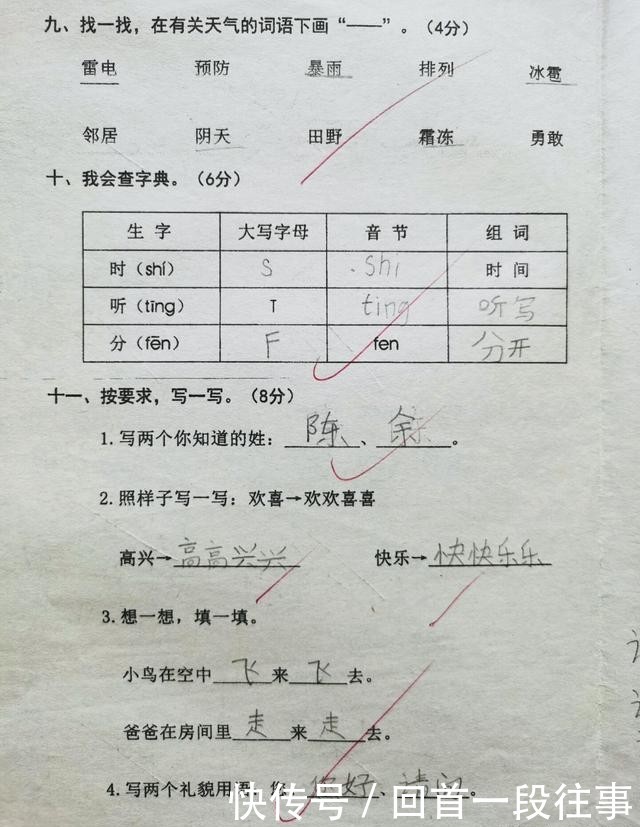 九、找一找，在有关天气的词语下画“——”。（4分）
雷电 预防 暴雨 排列 冰雹
邻居 阴天 田野 霜冻 勇敢
十、我会查字典。（6分）
生字 大写字母 音节 组词
时（shí） S shi 时间
听（tīng） T ting 听写
分（fēn） F fen 分开
十一、按要求，写一写。（8分）
1.写两个你知道的姓：陈、余。
2.照样子写一写：欢喜→欢欢喜喜
高兴→高高兴兴 快乐→快快乐乐
3.想一想，填一填。
小鸟在空中飞来飞去。
爸爸在房间里走来走去。
4.写两个礼貌用语：您、你好、请问。
快传号/回首一段往事